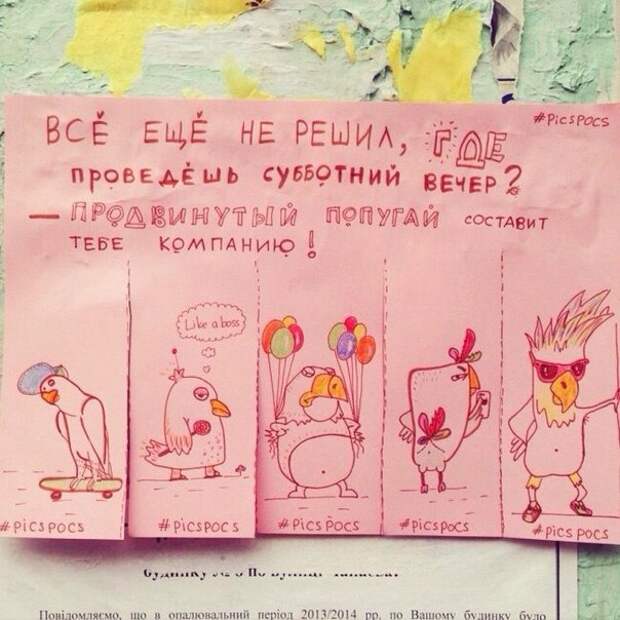 #PicsPocs
ВСЁ ЕЩЁ НЕ РЕШИЛ, ГДЕ
ПРОВЕДЁШЬ СУББОТНИЙ ВЕЧЕР?
— ПРОДВИНУТЫЙ ПОПУГАЙ СОСТАВИТ
ТЕБЕ КОМПАНИЮ!
Like a boss
#PicsPocs #PicsPocs #PicsPocs #PicsPocs #PicsPocs
будинку по вулиці
Повідомляємо, що в опалювальний період 2013/2014 рр. по Вашому будинку було